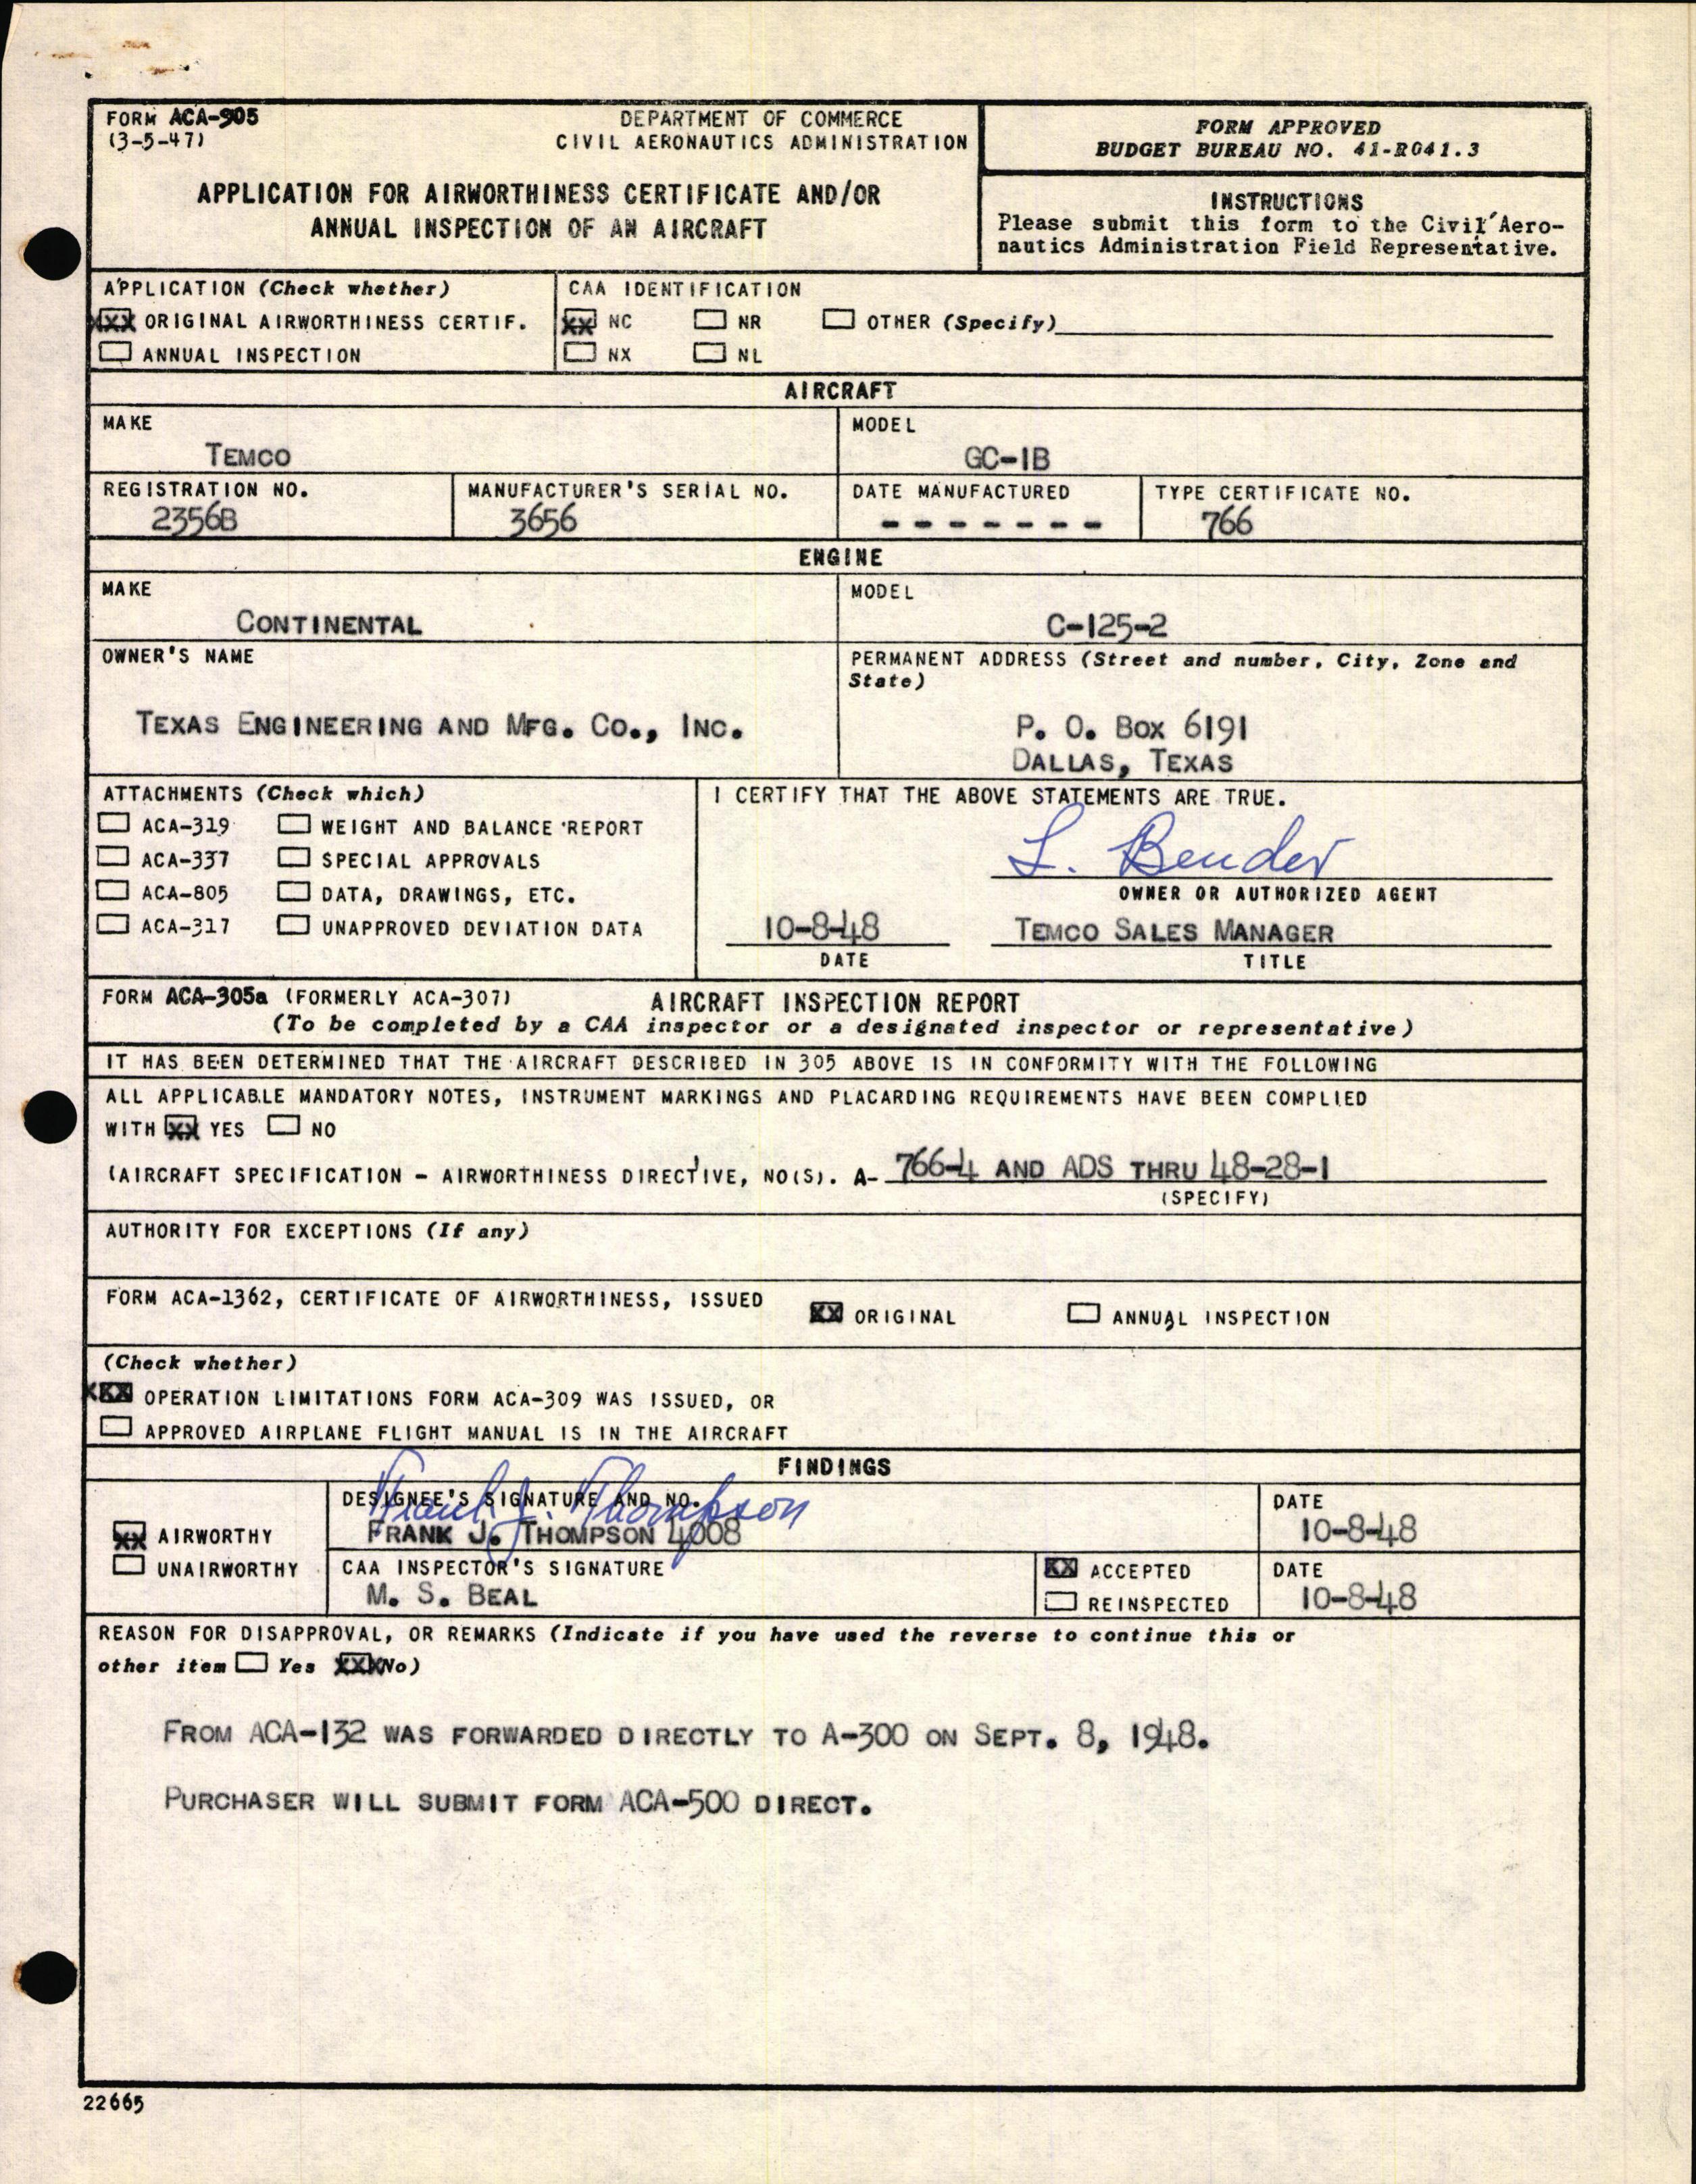 FORM ACA-305
(3-5-47)
DEPARTMENT OF COMMERCE
CIVIL AERONAUTICS ADMINISTRATION
APPLICATION FOR AIRWORTHINESS CERTIFICATE AND/OR
ANNUAL INSPECTION OF AN AIRCRAFT
FORM APPROVED
BUDGET BUREAU NO. 41-R041.3
INSTRUCTIONS
Please submit this form to the Civil Aero-
nautics Administration Field Representative.
APPLICATION (Check whether)
XXX ORIGINAL AIRWORTHINESS CERTIF.
ANNUAL INSPECTION
CAA IDENTIFICATION
XX NC NR OTHER (Specify)
NX NL
AIRCRAFT
MAKE
TEMCO
MODEL
GC-1B
REGISTRATION NO.
2356B
MANUFACTURER'S SERIAL NO.
3656
DATE MANUFACTURED
- - - - - - -
TYPE CERTIFICATE NO.
766
ENGINE
MAKE
CONTINENTAL
MODEL
C-125-2
OWNER'S NAME
TEXAS ENGINEERING AND MFG. CO., INC.
PERMANENT ADDRESS (Street and number, City, Zone and
State)
P. O. BOX 6191
DALLAS, TEXAS
ATTACHMENTS (Check which)
ACA-319 WEIGHT AND BALANCE REPORT
ACA-337 SPECIAL APPROVALS
ACA-805 DATA, DRAWINGS, ETC.
ACA-317 UNAPPROVED DEVIATION DATA
I CERTIFY THAT THE ABOVE STATEMENTS ARE TRUE.
L. Bender
OWNER OR AUTHORIZED AGENT
10-8-48
DATE
TEMCO SALES MANAGER
TITLE
FORM ACA-305a (FORMERLY ACA-307)
AIRCRAFT INSPECTION REPORT
(To be completed by a CAA inspector or a designated inspector or representative)
IT HAS BEEN DETERMINED THAT THE AIRCRAFT DESCRIBED IN 305 ABOVE IS IN CONFORMITY WITH THE FOLLOWING
ALL APPLICABLE MANDATORY NOTES, INSTRUMENT MARKINGS AND PLACARDING REQUIREMENTS HAVE BEEN COMPLIED
WITH XX YES NO
(AIRCRAFT SPECIFICATION - AIRWORTHINESS DIRECTIVE, NO(S). A- 766-4 AND ADS THRU 48-28-1
(SPECIFY)
AUTHORITY FOR EXCEPTIONS (If any)
FORM ACA-1362, CERTIFICATE OF AIRWORTHINESS, ISSUED
XX ORIGINAL ANNUAL INSPECTION
(Check whether)
XXX OPERATION LIMITATIONS FORM ACA-309 WAS ISSUED, OR
APPROVED AIRPLANE FLIGHT MANUAL IS IN THE AIRCRAFT
FINDINGS
XX AIRWORTHY
UNAIRWORTHY
DESIGNEE'S SIGNATURE AND NO.
Frank J. Thompson
FRANK J. THOMPSON 4008
DATE
10-8-48
CAA INSPECTOR'S SIGNATURE
M. S. BEAL
XX ACCEPTED
REINSPECTED
DATE
10-8-48
REASON FOR DISAPPROVAL, OR REMARKS (Indicate if you have used the reverse to continue this or
other item Yes XXX No)
FROM ACA-132 WAS FORWARDED DIRECTLY TO A-300 ON SEPT. 8, 1948.
PURCHASER WILL SUBMIT FORM ACA-500 DIRECT.
22665